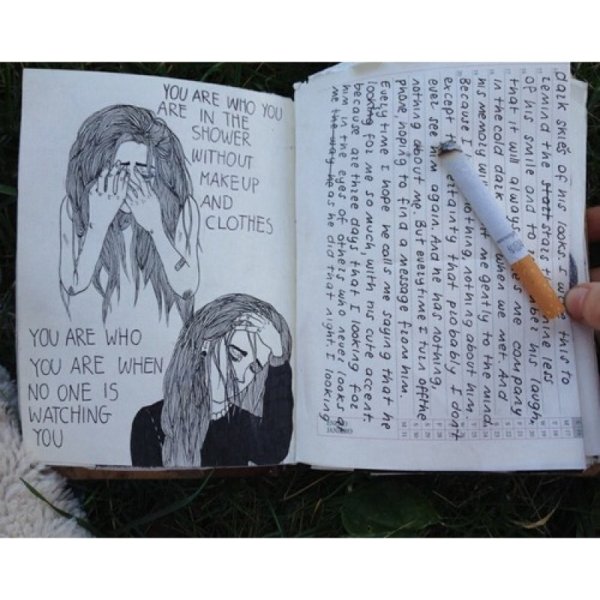 YOU ARE WHO YOU
ARE IN THE
SHOWER
WITHOUT
MAKEUP
AND
CLOTHES
YOU ARE WHO
YOU ARE WHEN
NO ONE IS
WATCHING
YOU
dark skies of his looks I this to
remind the start stars shine less
of his smile and to his laugh,
that it will always me company
in the cold dark when we met. And
his memory me gently to the mind.
Because I nothing, nothing about him,
except certainty that probably I don't
ever see him again. And he has nothing,
nothing about me. But everytime I turn off the
phone hoping to find a message from him.
Everytime I hope he calls me saying that he
looking for me so much, with his cute accent.
because are three days that I looking for
him in the eyes of others who never looks
me the way he as he did that night. I looking